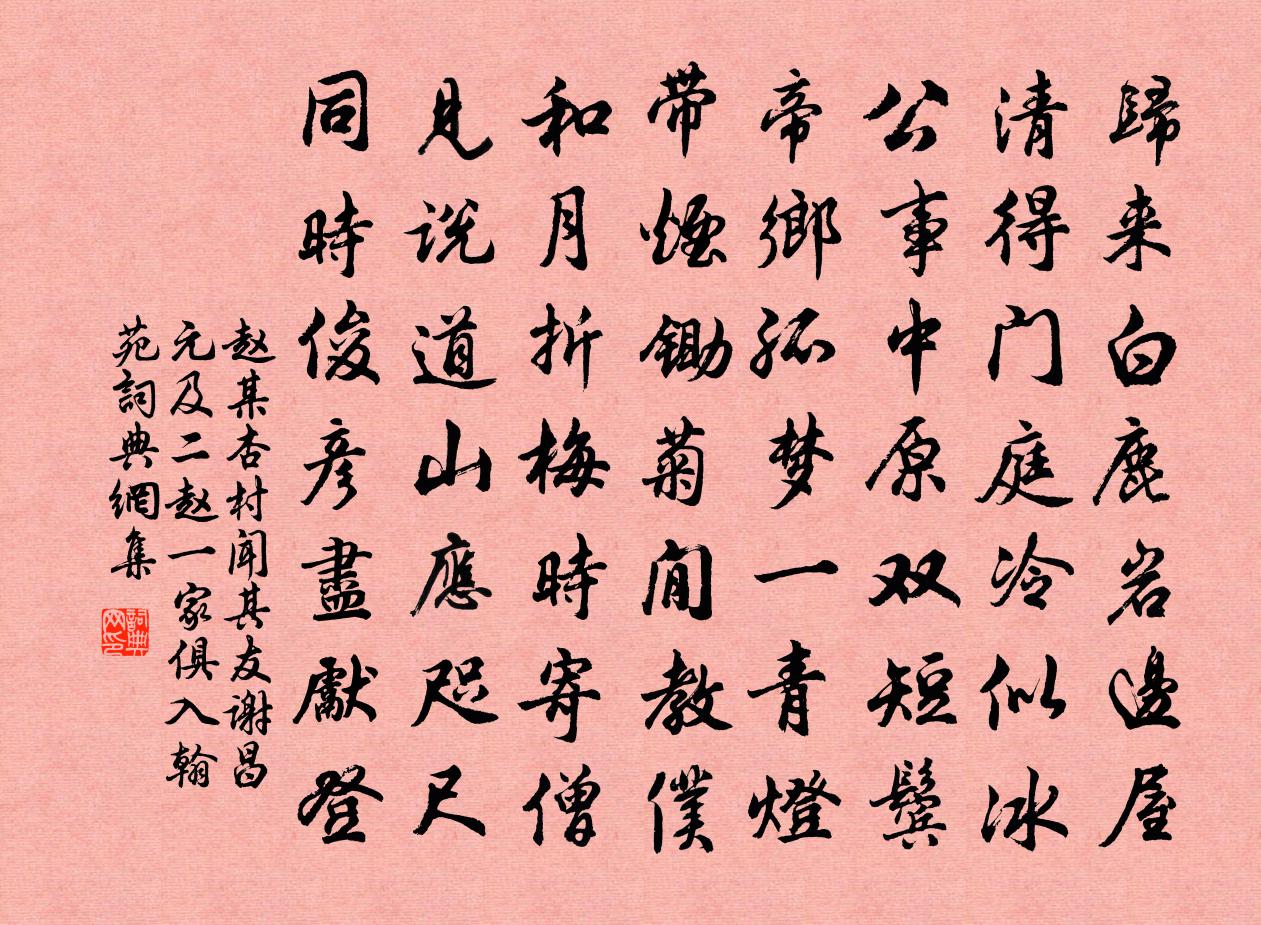 歸来白鹿岩邊屋
清得门庭冷似冰
公事中原双短鬓
帝鄉孤梦一青燈
带煙鋤菊閒教僕
和月折梅時寄僧
見説道山應咫尺
同時俊彦盡獻登
赵某杏村聞其友谢昌
元及二赵一家俱入翰
苑詞典網集
詞典网印